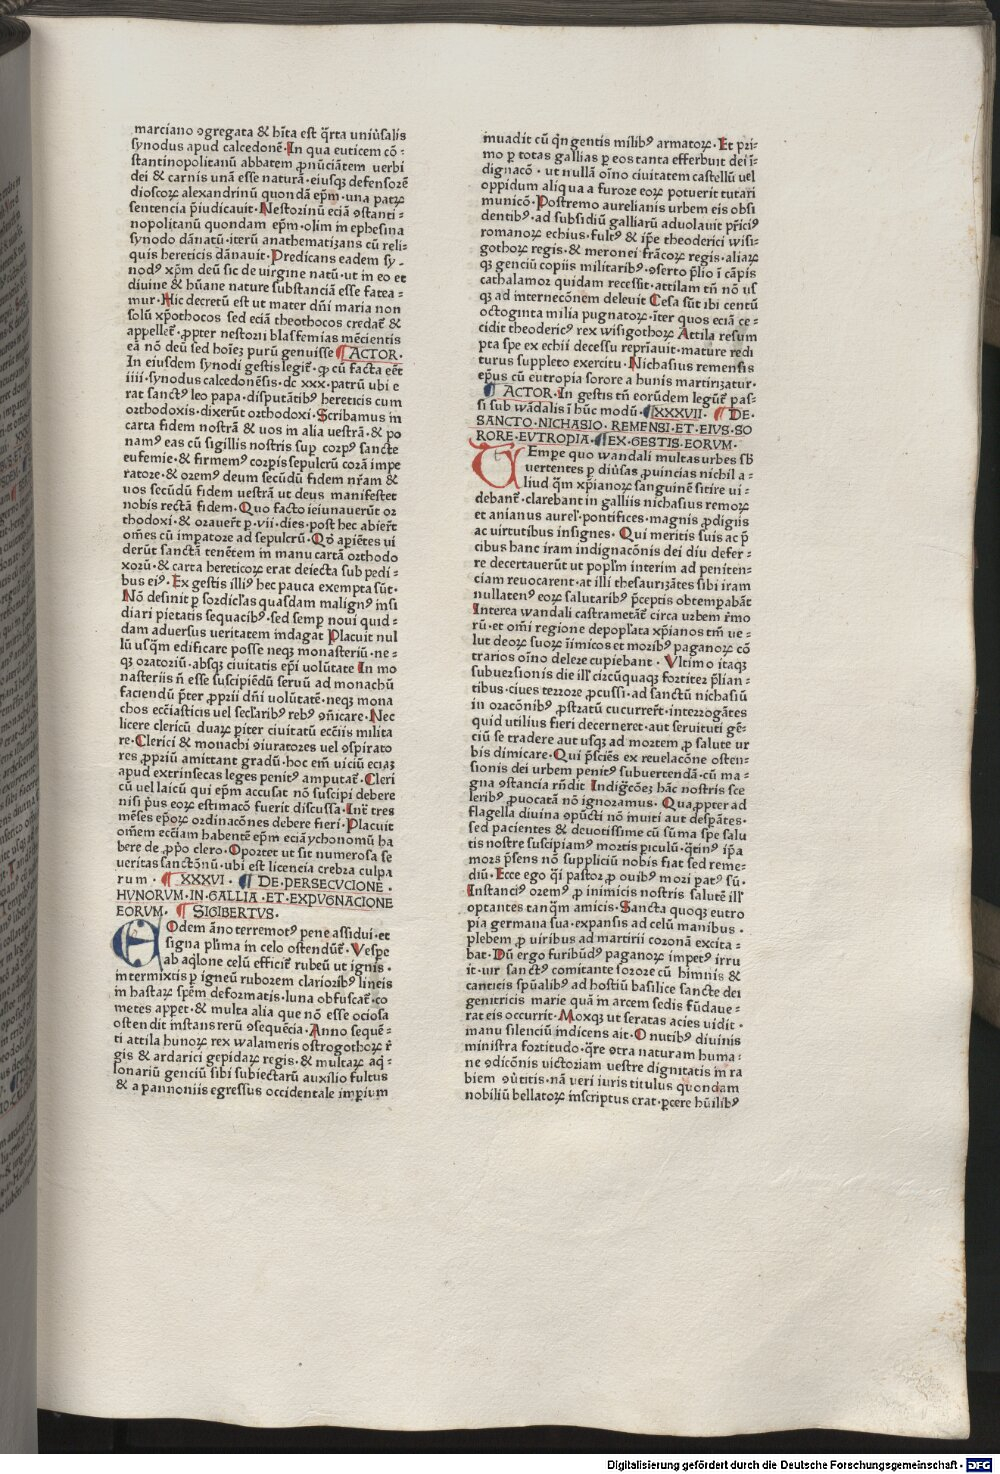 marciano ꝯgregata & hĩta est q̃rta uniũsalis
synodus apud calcedonẽ. In qua euticem cõ⸗
stantinopolitanũ abbatem ꝓnũciãtem uerbi
dei & carnis unã esse naturã. eiusqꝫ defensorẽ
dioscoꝝ alexandrinũ quondã ep̃m. una patꝝ
sentencia p̃iudicauit. Nestorinũ eciã ꝯstanti⸗
nopolitanũ quondam ep̃m. olim in ephesina
synodo dãnatũ. iterũ anathematizans cũ reli⸗
quis hereticis dãnauit. Predicans eadem sy⸗
nodꝰ xp̃m deũ sic de uirgine natũ. ut in eo et
diuine & hũane nature substanciã esse fatea⸗
mur. Hic decretũ est ut mater dñi maria non
solũ xp̃othocos sed eciã theothocos credat̃ &
appellet̃. ꝓpter nestorii blasfemias mẽcientis
eã nõ deũ sed hoiẽꝫ purũ genuisse ¶ ACTOR.
In eiusdem synodi gestis legit̃. ꝙ cũ facta eẽt
iiii. synodus calcedonẽsis. dc xxx. patrũ ubi e
rat sanctꝰ leo papa. disputãtibꝰ hereticis cum
orthodoxis. dixerũt orthodoxi. Scribamus in
carta fidem nostrã & uos in alia uestrã. & po
namꝰ eas cũ sigillis nostris suꝑ corpꝰ sancte
eufemie. & firmemꝰ corpis sepulcrũ corã impe
ratore. & oremꝰ deum secũdũ fidem nr̃am &
uos secũdũ fidem uestrã ut deus manifestet
nobis rectã fidem. Quo facto ieiunauerũt or
thodoxi. & orauert̃ ꝑ. vii. dies. post hec abiert̃
om̃es cũ imꝑatore ad sepulcrũ. Qđ apiẽtes ui
derũt sanctã tenẽtem in manu cartã orthodo
xorũ. & carta hereticoꝝ erat deiecta sub pedi⸗
bus eiꝰ. Ex gestis illiꝰ hec pauca exempta sũt.
Nõ desinit ꝑ sordicl̃as quasdam malignꝰ insi
diari pietatis sequacibꝰ. sed semꝑ noui quid⸗
dam aduersus ueritatem indagat Placuit nul
lũ usq̃m edificare posse neqꝫ monasteriũ. ne⸗
qꝫ oratoriũ. absqꝫ ciuitatis ep̃i uolũtate In mo
nasteriis ñ esse suscipiẽdũ seruũ ad monachũ
faciendũ p̃ter ꝓprii dñi uolũtatẽ. neqꝫ mona
chos ecc̃iasticis uel secl̃aribꝰ rebꝰ ꝯñicare. Nec
licere clericũ duaꝝ piter ciuitatũ ecc̃iis milita
re. Clerici & monachi ꝯiuratores uel ꝯspirato
res ꝓpriũ amittant gradũ. hoc em̃ uiciũ eciaꝫ
apud extrinsecas leges penitꝰ amputat̃. Cleri
cũ uel laicũ qui ep̃m accusat nõ suscipi debere
nisi p̃us eoꝝ estimacõ fuerit discussa. Int̃ tres
mẽses ep̃oꝝ ordinacõnes debere fieri. Placuit
om̃em ecc̃iam habentẽ ep̃m eciã ychonomũ ha
bere de ꝓp̃o clero. Oportet ut sit numerosa se
ueritas sanctõnũ. ubi est licencia crebra culpa
rum. ¶ XXXVI. ¶ DE. PERSECVCIONE.
HVNORVM. IN. GALLIA. ET. EXPVGNACIONE
EORVM. ¶ SIGIBERTVS.
EOdem ãno terremotꝰ pene assidui. et
signa pl̃ima in celo ostendũt̃. Vespe
ab aq̃lone celũ efficit̃ rubeũ ut ignis.
intermixtis ꝑ igneũ ruborem clarioribꝰ lineis
in hastaꝝ sp̃em deformatis. luna obfuscat̃. co
metes appet̃. & multa alia que nõ esse ociosa
ostendit instans rerũ ꝯsequẽcia. Anno sequẽ⸗
ti attila hunoꝝ rex walameris ostrogothoꝝ r̃
gis & ardarici gepidaꝝ regis. & multaꝝ aq̃⸗
lonariũ genciũ sibi subiectarũ auxilio fultus
& a pannoniis egressus occidentale imꝑium
inuadit cũ q̃ngentis milibꝰ armatoꝝ. Et pri⸗
mo ꝑ totas gallias ꝑ eos tanta efferbuit dei ĩ⸗
dignacõ. ut nullã oĩno ciuitatem castellũ uel
oppidum aliqua a furore eoꝝ potuerit tutari
municõ. Postremo aurelianis urbem eis obsi
dentibꝰ. ad subsidiũ galliarũ aduolauit pr̃iciꝰ
romanoꝝ echius. fultꝰ & ip̃e theoderici wisi⸗
gothoꝝ regis. & meronei frãcoꝝ regis. aliaꝝ
qꝫ genciũ copiis militaribꝰ. ꝯserto p̃lio ĩ cãpis
cathalamoꝝ quidam recessit. attilam tñ nõ us
qꝫ ad internecõnem deleuit Cesa sũt ibi centũ
octoginta milia pugnatoꝝ. ĩter quos eciã ce⸗
cidit theodericꝰ rex wisigothoꝝ Attila resum
pta spe ex echii decessu repr̃iauit. mature redi
turus suppleto exercitu. Nichasius remensis
ep̃us cũ eutropia sorore a hunis martirizatur.
¶ ACTOR. In gestis tñ eorũdem legũt̃ pas⸗
si sub wãdalis ĩ hũc modũ. ¶ XXXVII. ¶ DE.
SANCTO. NICHASIO. REMENSI. ET. EIVS. SO
RORE. EVTROPIA. ¶ EX. GESTIS. EORVM.
TEmpe quo wandali multas urbes sb̃
uertentes ꝑ diũsas ꝓuincias nichil a⸗
liud q̃m xp̃ianoꝝ sanguinẽ sitire ui⸗
debant̃. clarebant in galliis nichasius remoꝝ
et anianus aurel̃. pontifices. magnis ꝓdigiis
ac uirtutibus insignes. Qui meritis suis ac p̃
cibus hanc iram indignacõnis dei diu defer⸗
re decertauerũt ut popl̃m interim ad peniten⸗
ciam reuocarent. at illi thesaurizãtes sibi iram
nullatenꝰ eoꝝ salutaribꝰ p̃ceptis obtempabãt
Interea wandali castrametãt̃ circa urbem r̃mo
rũ. et om̃i regione depopl̃ata xp̃ianos tm̃ ue⸗
lut deoꝝ suoꝝ ĩimicos et moribꝰ paganoꝝ cõ
trarios oĩno delere cupiebant. Vltimo itaqꝫ
subuersionis die ill̃ circũquaqꝫ fortiter p̃lian⸗
tibus. ciues terrore ꝑcussi. ad sanctũ nichasiũ
in oracõnibꝰ ꝓstratũ cucurrert̃. interrogãtes
quid utilius fieri decerneret. aut seruituti gẽ⸗
ciũ se tradere aut usqꝫ ad mortem ꝓ salute ur
bis dimicare. Qui p̃sciẽs ex reuelacõne osten⸗
sionis dei urbem penitꝰ subuertendã. cũ ma⸗
gna ꝯstancia rñdit Indigẽcõeꝫ hãc nostris sce
leribꝰ ꝓuocatã nõ ignoramus. Quapropter ad
flagella diuina ꝯpũcti nõ muiti aut despãtes.
sed pacientes & deuotissime cũ sũma spe salu
tis nostre suscipiamꝰ mortis piculũ. q̃tinꝰ ip̃a
mors p̃sens nõ suppliciũ nobis fiat sed reme⸗
diũ. Ecce ego q̃i pastor ꝓ ouibꝰ mori patꝰ sũ.
Instanciꝰ oremꝰ ꝓ inimicis nostris salutẽ ill̃
optantes tanq̃m amicis. Sancta quoqꝫ eutro
pia germana sua. expansis ad celũ manibus.
plebem ꝓ uiribus ad martirii coronã excita⸗
bat. Dũ ergo furibũdꝰ paganoꝝ impetꝰ irru
it. uir sanctꝰ comitante sorore cũ himnis &
canticis sp̃ualibꝰ ad hostiũ basilice sancte dei
genitricis marie quã in arcem sedis fũdaue⸗
rat eis occurrit. Moxqꝫ ut seratas acies uidit.
manu silenciũ indicens ait. O nutibꝰ diuinis
ministra fortitudo. q̃re ꝯtra naturam huma⸗
ne ꝯdicõnis uictoriam uestre dignitatis in ra
biem ꝯũtitis. nã ueri iuris titulus quondam
nobiliũ bellatoꝝ inscriptus erat. ꝑcere hũilibꝰ
Digitalisierung gefördert durch die Deutsche Forschungsgemeinschaft · DFG